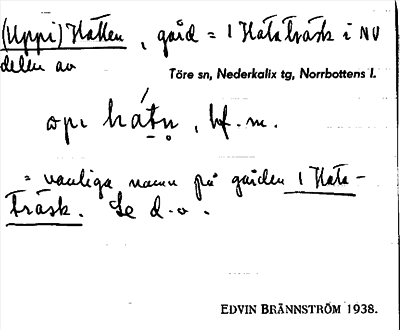 (Uppi) Hatten, gård = 1 Hataträsk i NV
delen av
Töre sn, Nederkalix tg, Norrbottens l.
opɩ hátn̥, bf. m.
= vanliga namn på gården 1 Hata-
träsk. Se d. o.
EDVIN BRÄNNSTRÖM 1938.